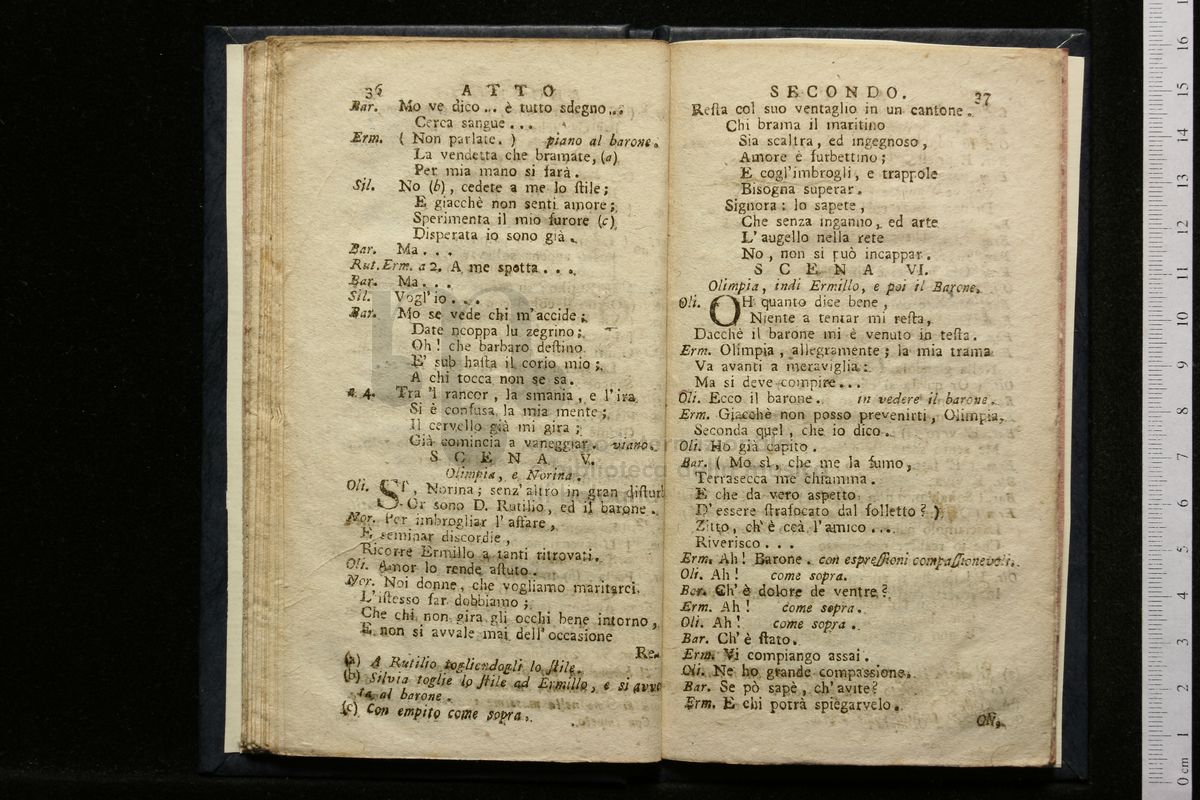 36 ATTO
Bar. Mo ve dico... è tutto sdegno...
Cerca sangue...
Erm. ( Non parlate. ) piano al barone.
La vendetta che bramate, (a)
Per mia mano si farà.
Sil. No (b), cedete a me lo ſtile;
E giacchè non senti amore;
Sperimenta il mio furore (c)
Disperata io sono già.
Bar. Ma...
Rut. Erm. a 2. A me spetta...
Bar. Ma...
Sil. Vogl'io...
Bar. Mo se vede chi m'accide;
Date ncoppa lu zegrino;
Oh! che barbaro deſtino
E' sub haſta il corio mio;
A chi tocca non se sa.
a 4. Tra 'l rancor, la smania, e l'ira
Si è confusa la mia mente;
Il cervello già mi gira;
Già comincia a vaneggiar. viano.
SCENA V.
Olimpia, e Norina.
Oli. Sì, Norina; senz'altro in gran diſturb
Or sono D. Rutilio, ed il barone.
Nor. Per imbrogliar l'affare,
E seminar discordie,
Ricorre Ermillo a tanti ritrovati.
Oli. Amor lo rende aſtuto.
Nor. Noi donne, che vogliamo maritarci,
L'iſtesso far dobbiamo;
Che chi non gira gli occhi bene intorno,
E non si avvale mai dell'occasione
Re-
(a) A Rutilio togliendogli lo ſtile.
(b) Silvia toglie lo ſtile ad Ermillo, e si avve
ta al barone.
(c) Con empito come sopra.
SECONDO. 37
Reſta col suo ventaglio in un cantone.
Chi brama il maritino
Sia scaltra, ed ingegnoso,
Amore è furbettino;
E cogl'imbrogli, e trappole
Bisogna superar.
Signora: lo sapete,
Che senza inganno, ed arte
L'augello nella rete
No, non si può incappar.
SCENA VI.
Olimpia, indi Ermillo, e poi il Barone.
Oli. OH quanto dice bene,
Niente a tentar mi reſta,
Dacchè il barone mi è venuto in teſta.
Erm. Olimpia, allegramente; la mia trama
Va avanti a meraviglia:
Ma si deve compire...
Oli. Ecco il barone. in vedere il barone.
Erm. Giacchè non posso prevenirti, Olimpia,
Seconda quel, che io dico.
Oli. Ho già capito.
Bar. ( Mo sì, che me la fumo,
Terrasecca me chiamma.
E che da vero aspetto
D'essere ſtrafocato dal folletto? )
Zitto, ch'è ccà l'amico...
Riverisco...
Erm. Ah! Barone. con espreſſioni compaſſionevoli.
Oli. Ah! come sopra.
Bar. Ch'è dolore de ventre?
Erm. Ah! come sopra.
Oli. Ah! come sopra.
Bar. Ch'è ſtato.
Erm. Vi compiango assai.
Oli. Ne ho grande compassione.
Bar. Se pò sapè, ch'avite?
Erm. E chi potrà spiegarvelo.